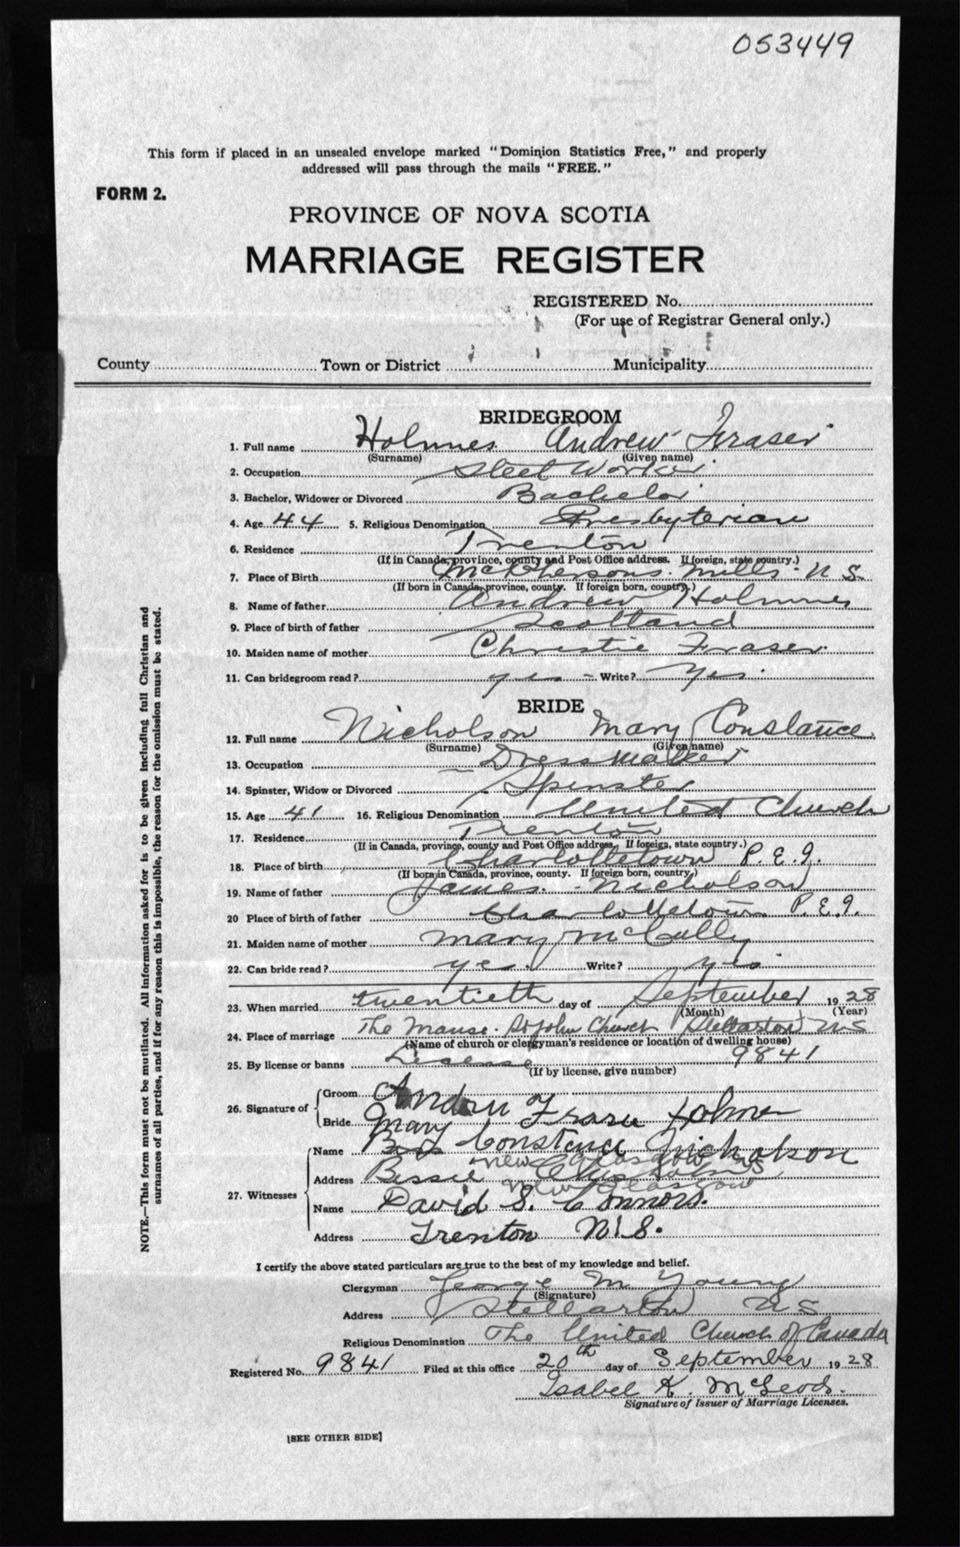 053449
This form if placed in an unsealed envelope marked "Dominion Statistics Free," and properly
addressed will pass through the mails "FREE."
FORM 2.
PROVINCE OF NOVA SCOTIA
MARRIAGE REGISTER
REGISTERED No.
(For use of Registrar General only.)
County Town or District Municipality
BRIDEGROOM
1. Full name Holmes Andrew Fraser
(Surname) (Given name)
2. Occupation Steel Worker
3. Bachelor, Widower or Divorced Bachelor
4. Age 44 5. Religious Denomination Presbyterian
6. Residence Trenton
(If in Canada, province, county and Post Office address. If foreign, state country.)
7. Place of Birth McPhersons Mills N S.
(If born in Canada, province, county. If foreign born, country.)
8. Name of father Andrew Holmes
9. Place of birth of father Scotland
10. Maiden name of mother Christie Fraser
11. Can bridegroom read? yes Write? yes
BRIDE
12. Full name Nicholson Mary Constance
(Surname) (Given name)
13. Occupation Dressmaker
14. Spinster, Widow or Divorced Spinster
15. Age 41 16. Religious Denomination United Church
17. Residence Trenton
(If in Canada, province, county and Post Office address, If foreign, state country.)
18. Place of birth Charlottetown P.E.I.
(If born in Canada, province, county. If foreign born, country)
19. Name of father James Nicholson
20 Place of birth of father Charlottetown P.E.I.
21. Maiden name of mother Mary McCully
22. Can bride read? yes Write? yes
23. When married twentieth day of September 1928
(Month) (Year)
24. Place of marriage The Manse St John Church Stellarton N S
(Name of church or clergyman's residence or location of dwelling house)
25. By license or banns License 9841
(If by license, give number)
26. Signature of Groom Andrew Fraser Holmes
Bride Mary Constance Nicholson
27. Witnesses
Name Bessie
Address New Glasgow NS
New Glasgow
Name David S. Connors.
Address Trenton N.S.
I certify the above stated particulars are true to the best of my knowledge and belief.
Clergyman George M Young
(Signature)
Address Stellarton N S
Religious Denomination The United Church of Canada
Registered No. 9841 Filed at this office 20th day of September 1928
Isabel K. McLeod.
Signature of Issuer of Marriage Licenses.
[SEE OTHER SIDE]
NOTE.—This form must not be mutilated. All information asked for is to be given including full Christian and
surnames of all parties, and if for any reason this is impossible, the reason for the omission must be stated.